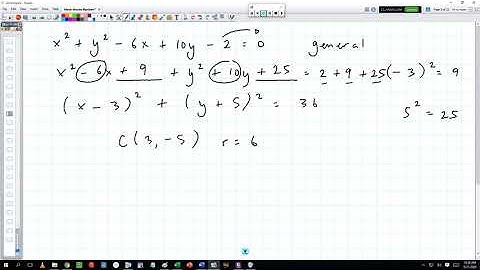 x² + y² - 6x + 10y - 2 = 0 general
x² - 6x + 9 + y² + 10y + 25 = 2 + 9 + 25 (-3)² = 9
(x - 3)² + (y + 5)² = 36
5² = 25
C(3, -5) r = 6